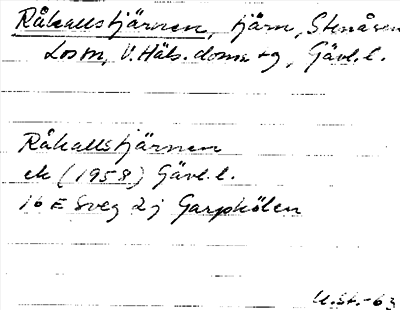 Råkallstjärnen, tjärn, Stenåsen
Loson, V. Häls. doms-g, Gävl. l.
Råkallstjärnen
ek (1958) Gävl. l.
16 E Sveg 2j Garphölen
U.St.-63